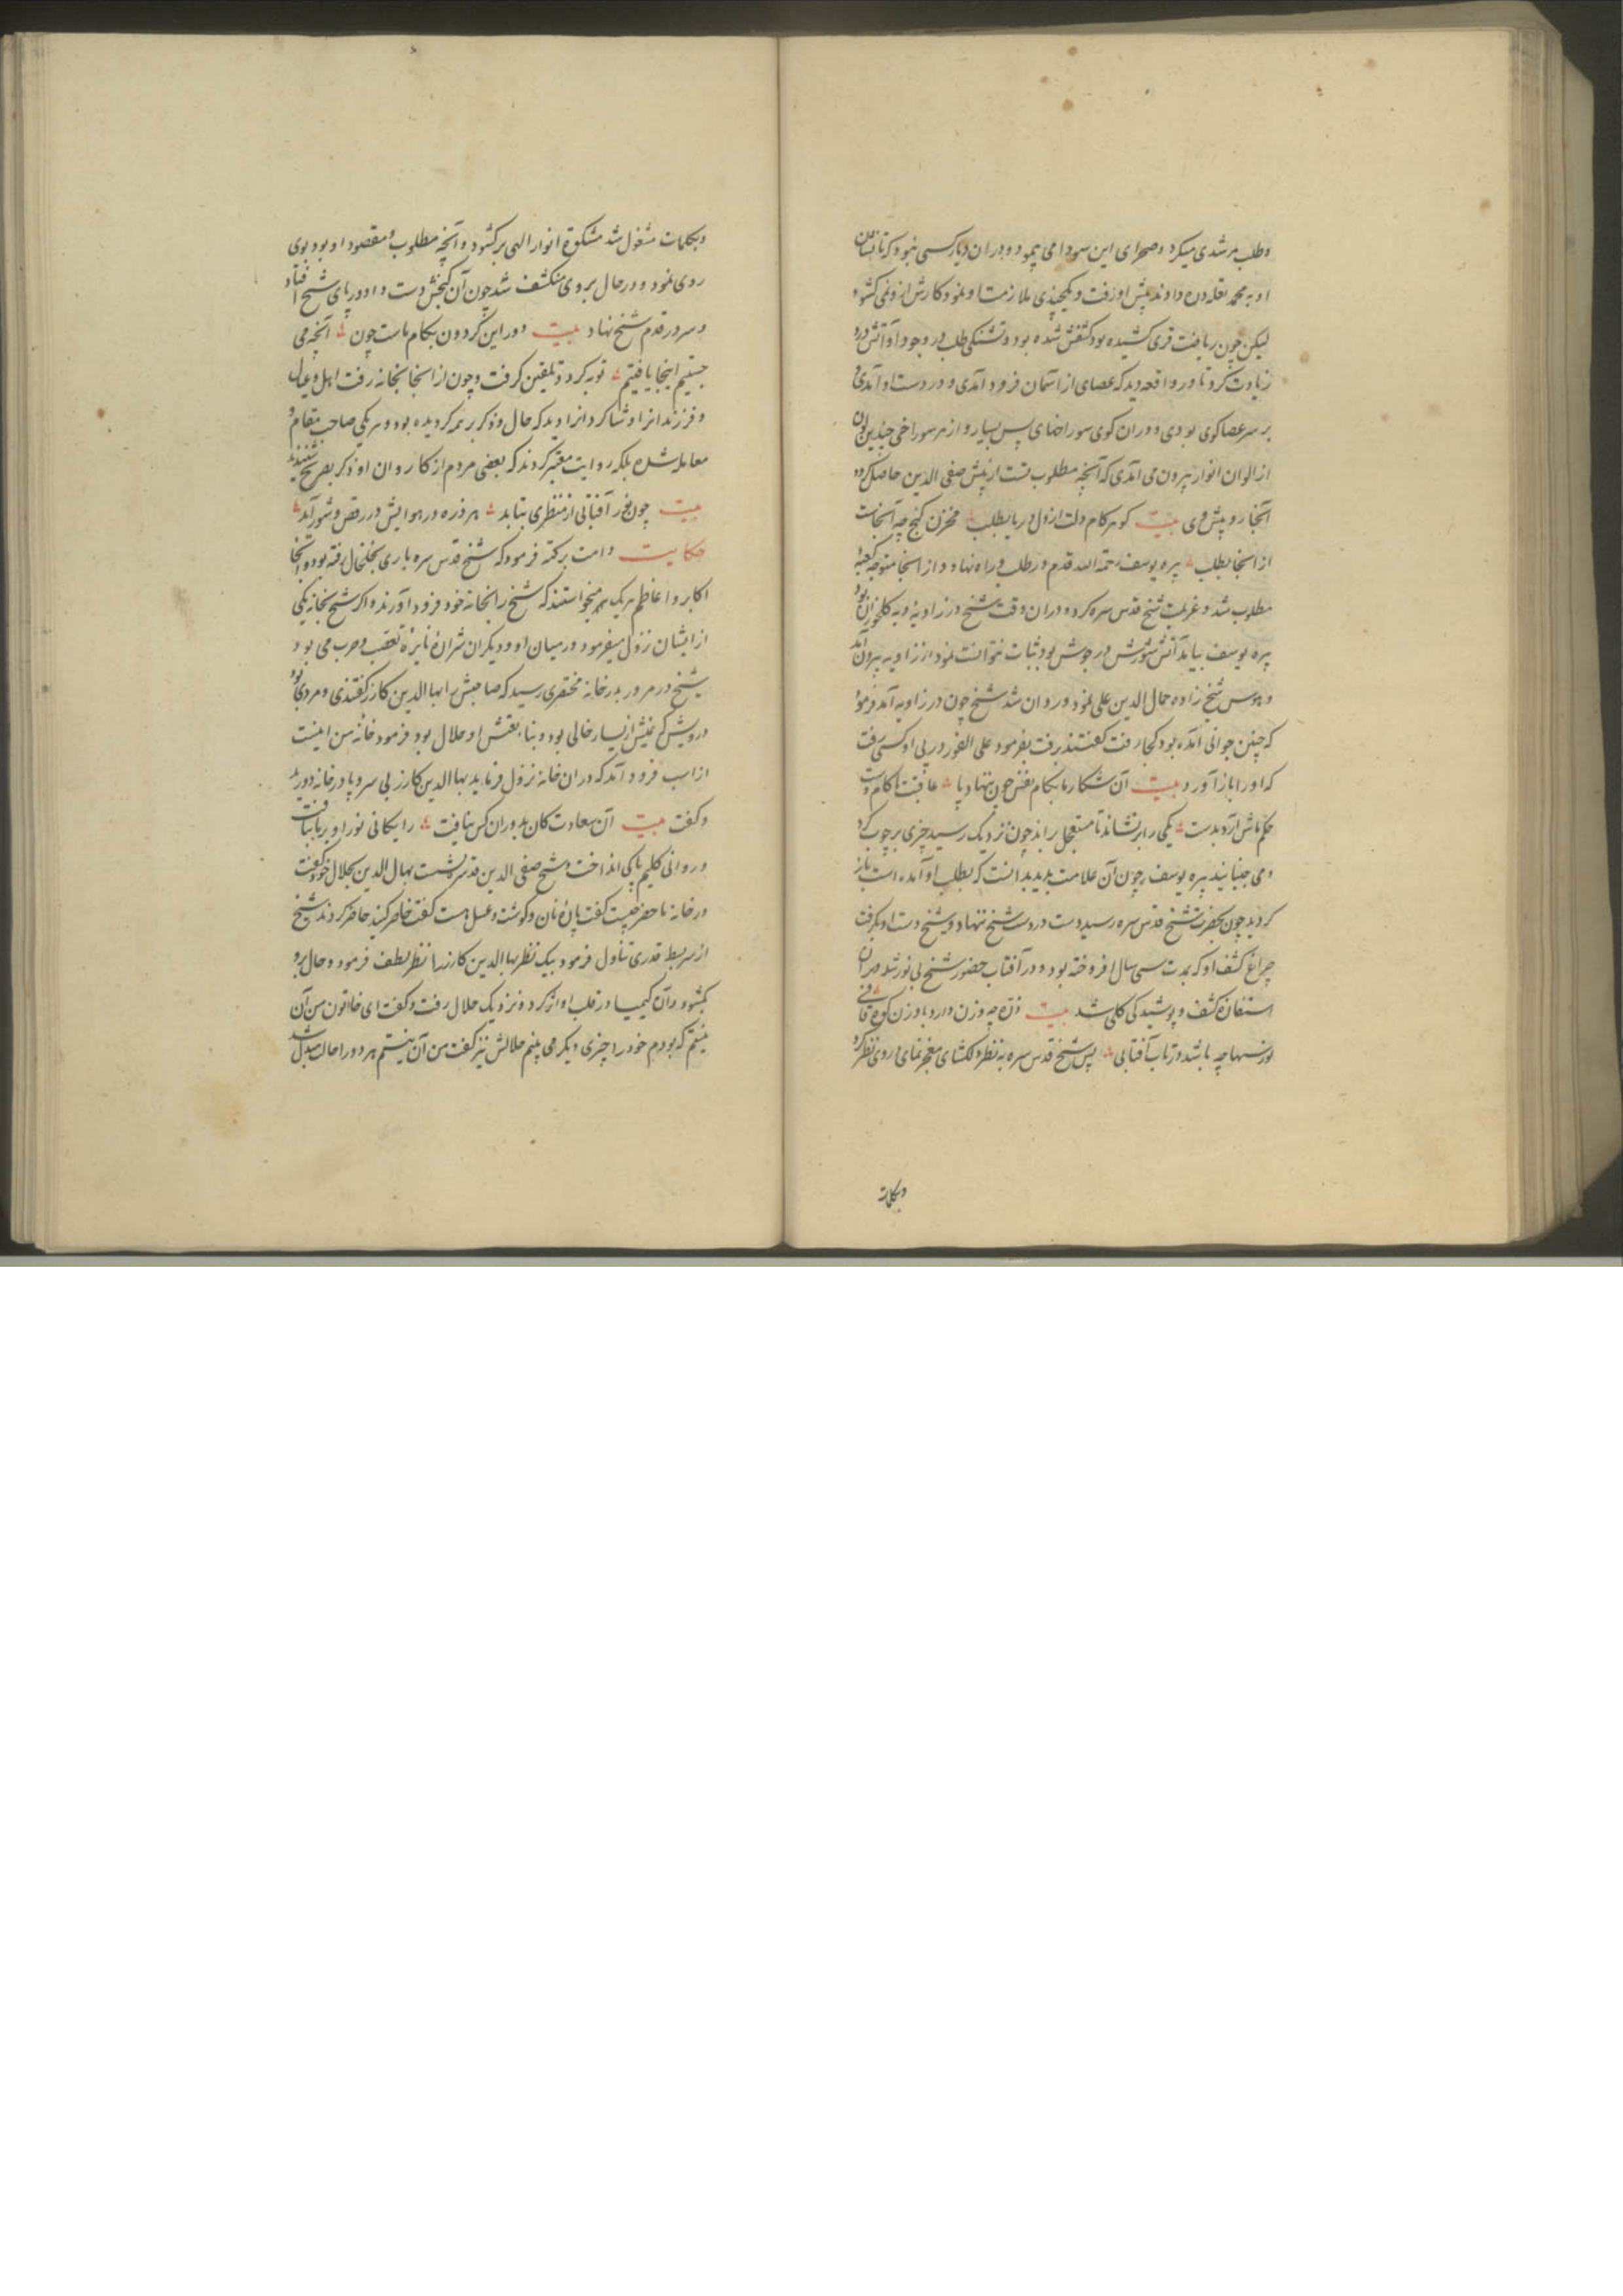 وطلب مرشدی میکرد و صحرای این سودا می پیمود و دران دیار کسی نبود که تا نشان
او به محمد نقله دن دادند پیش او رفت و یکچندی ملازمت او نمود کارش ازو نمی کشود
لیکن چون ریاضت قری کشیده بود کشفش شده بود و تشنکی طلب در وجود او آتش درد
زیادت کرد تا در واقعه دید که عصای از آسمان فرود آمدی و در دست او آمدی و
بر سر عصا کوی بودی و دران کوی سوراخهای بس بسیار و از هر سوراخی چندین لون
از الوان انوار بیرون می آمدی که آنچه مطلوب تست از پیش صفی الدین حاصل کرد
آنجا رو پیش وی بیت کوهر کام دلت از دل دریا بطلب مخزن کنج چه آنجاست
از آنجا بطلب پیره یوسف رحمة الله قدم در طلب در راه نهاد و از آنجا متوجه کعبه
مطلوب شد و عزیمت شیخ قدس سره کرد و دران وقت شیخ در زاویه دیه کلخوران بود
پیره یوسف بیامد آتش شورش در جوش بود ثبات نتوانست نمود از زاویه بیرون آمد
و بهوس شیخ زاده جمال الدین علی نمود و روان شد شیخ چون در زاویه آمد فرمود
که چنین جوانی آمده بود کجا رفت کفتند رفت بفرمود علی الفور در پی او کسی رفت
که او را باز آورد بیت آن شکار ما بکام نفس چون ننهاد پا عاقبت با کام دوست
حکم ماش آرد بدست یکی را بر نشاند تا مستعجل براند چون نزدیک رسید چیزی بر چوب کرد
و می جنبانید پیره یوسف چون آن علامت بدید بدانست که بطلب او آمده است باز
کردید چون بحضرت شیخ قدس سره رسید دست در دست شیخ نهاد و شیخ دست او بکرفت
چراغ کشف او که بمدت سی سال افروخته بود در آفتاب حضور شیخ بی نور شد و آن
استفاده کشف و پوشیدکی کلی شد بیت ذره چه وزن دارد با وزن کوه قافی
نور سها چه باشد در تاب آفتابی پس شیخ قدس سره به نظر دلکشای معجز نمای در وی نظر کرد
وبکلمات
وبکلمات مشغول شد مشکوة انوار الهی برکشود و آنچه مطلوب و مقصود او بود بوی
روی نمود و در حال بر وی منکشف شد چون آن کنجش دست داد در پای شیخ افتاد
و سر در قدم شیخ نهاد بیت دور این کردون بکام ماست چون آنچه می
جستیم اینجا یافتیم توبه کرد و تلقین کرفت و چون از آنجا بخانه رفت اهل و عیال
و فرزندانرا و شاکردانرا دید که حال و ذکر بر همه کردیده بود و هر یکی صاحب مقام و
معامله شده بلکه روایت معتبر کردند که بعضی مردم از کاروان او ذکر بصریح شنیدند
بیت چون نور آفتابی از منظری بتابد هر ذره در هوایش در رقص و شور آید
حکایت دامت برکته فرمود که شیخ قدس سره باری بخلخال رفته بود و آنجا
اکابر و اعاظم هر یک میخواستند که شیخ را بخانه خود فرود آورند و اکر شیخ بخانه یکی
از ایشان نزول میفرمود در میان او و دیکران شراره نایره تعصب و حرب می بود
شیخ در مرور بدر خانه مختصری رسید که صاحبش را بها الدین کازر کفتندی و مردی بود
درویش که یمینش از یسار خالی بود و بنا بعتش او حلال بود فرمود خانه من اینست
از اسب فرود آمد که در ان خانه نزول فرماید بها الدین کازر بی سر و پا در خانه دوید
و کفت بیت آن سعادت کان بدوران کس نیافت رایکانی نور او بر ما بتافت
و روانی کلیم پاکی انداخت و شیخ صفی الدین قدس سره نشست بها الدین بحلال خود کفت
در خانه ما حضر چیست کفت پاره نان و کوشت و عسل هست کفت حاضر کنید حاضر کردند شیخ
از سر بسط قدری تناول فرمود بیک نظر بها الدین کازر را نظر لطف فرمود و حال برو
بکشود و آن کیمیا در قلب او اثر کرد و نزدیک حلال رفت و کفت ای خاتون من آن
نیستم که بودم خود را چیزی دیکر می بینم حلالش نیز کفت من آن نیستم هر دو را حال مبدل شد